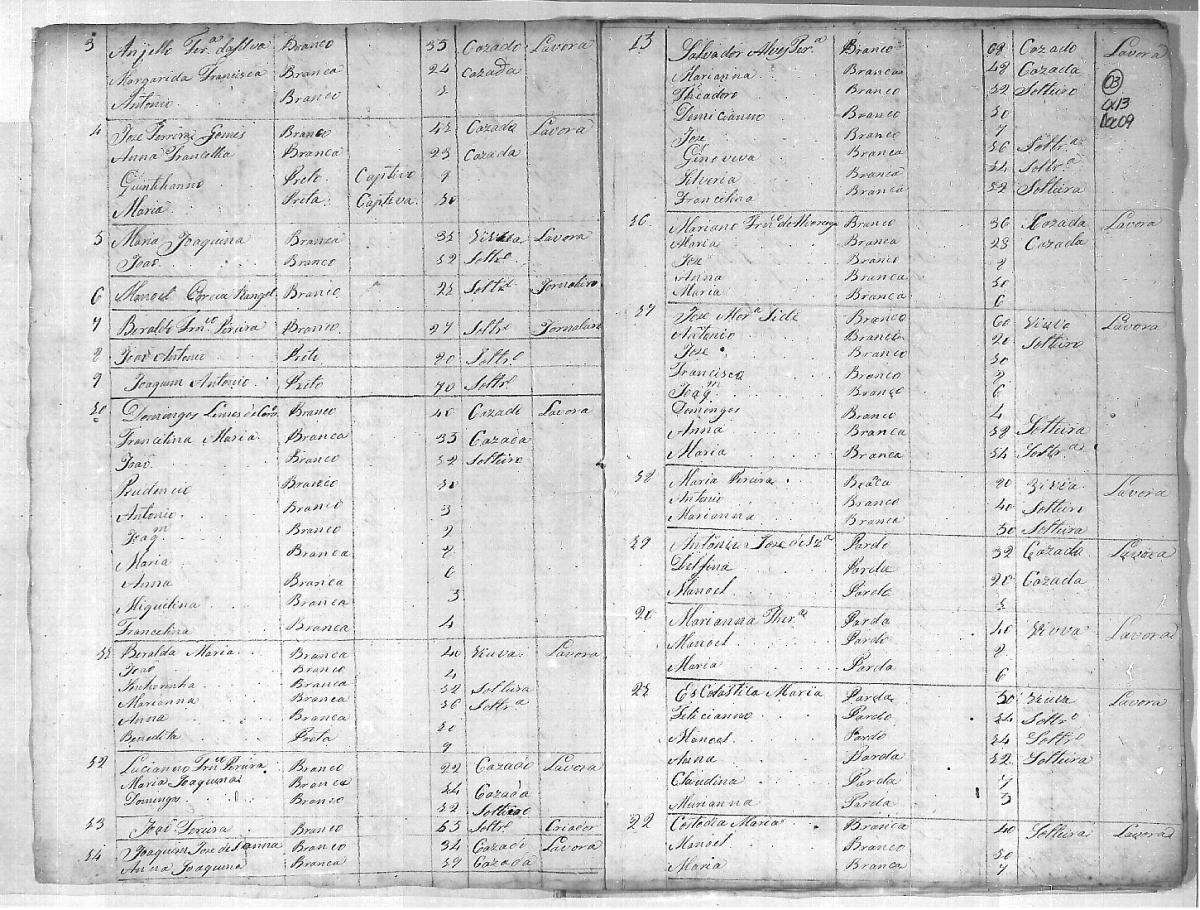 3 Anjello Fer.ª daSilva Branco 35 Cazado Lavora
Margarida Francisca Branca 24 Cazada
Antonio Branco
4 Joze Ferreira Gomes Branco 45 Cazada Lavora
Anna Branca 23 Cazada
Preto Captivo
Maria Preta Captiva 50
5 Maria Joaquina Branca 35 Viuva Lavora
Joaõ Branco 52 Soltr.º
6 Manoel Correa Rangel Branco 25 Soltr.º Jornaleiro
7 Beraldo Frn.co Pereira Branco 27 Soltr.º
8 Joaõ Antonio Preto 80 Soltr.º
9 Joaquim Antonio Preto 70 Soltr.º
50 Domingos Branco 40 Cazado Lavora
Francelina Maria Branca 33 Cazada
Joaõ Branco 52 Solteiro
Prudencio Branco 50
Antonio Branco 3
Joaq.m Branco
Maria Branca
Anna Branca 6
Miquilina Branca 3
Francelina Branca 4
55 Beralda Maria Branca 40 Viuva Lavora
Joaõ Branco 4
Branca 52 Soltura
Marianna Branca 56 Soltr.ª
Anna Branca 50
Benedita Preta 9
52 Lucianno Frn.co Pereira Branco 22 Cazado Lavora
Maria Joaquina Branca 54 Cazada
Domingos Branco 52 Solteiro
53 Joaõ Pereira Branco 53 Soltr.º Criador
54 Joaquim Joze de Sanna Branco 34 Cazado Lavora
Anna Joaquina Branca 59 Cazada
13 Salvador Alves Per.ª Branco 68 Cazado Lavora
Marianna Branca 48 Cazada
Theadoro Branco 52 Solteiro
Demicianno Branco 50
Joze Branco 7
Genoveva Branca 56 Soltr.ª
Silveria Branca 54 Soltr.ª
Francelina Branca 52 Soltura
03
CX13
Doc09
56 Mariano Branco 36 Cazada Lavora
Maria Branca 28 Cazada
Joze Branco
Anna Branca 50
Maria Branca 6
57 Joze Branco 60 Viuvo Lavora
Antonio Branco 20 Solteiro
Joze Branco 50
Francisco Branco
Joaq.m Branco 6
Domingos Branco 4
Anna Branca 58 Soltura
Maria Branca 54 Soltr.ª
58 Maria Pereira Branca 80 Viuva Lavora
Antonio Branco 40
Marianna Branca 50 Soltura
59 Antonio Joze Pardo 32 Cazada Lavora
Delfina Parda 20 Cazada
Manoel Pardo
20 Marianna Parda 40 Viuva Lavora
Manoel Pardo
Maria Parda 6
25 Escolastica Maria Parda 50 Viuva Lavora
Felicianno Pardo 54 Soltr.º
Manoel Pardo 54 Soltr.º
Anna Parda 52 Soltura
Claudina Parda 7
Marianna Parda 3
22 Costodia Maria Branca 40 Soltura Lavora
Manoel Branco 50
Maria Branca 7